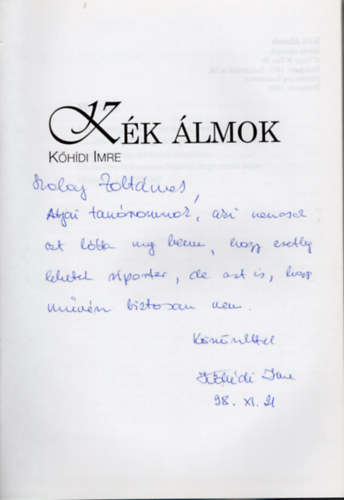 KÉK ÁLMOK
KŐHÍDI IMRE
Zoltánnak,
tanáromnak, aki nemcsak
azt látta meg bennem, hogy esetleg
lehetek riporter, de azt is, hogy
művész biztosan nem.
Köszönettel
Kőhídi Imre
98. XI. 21